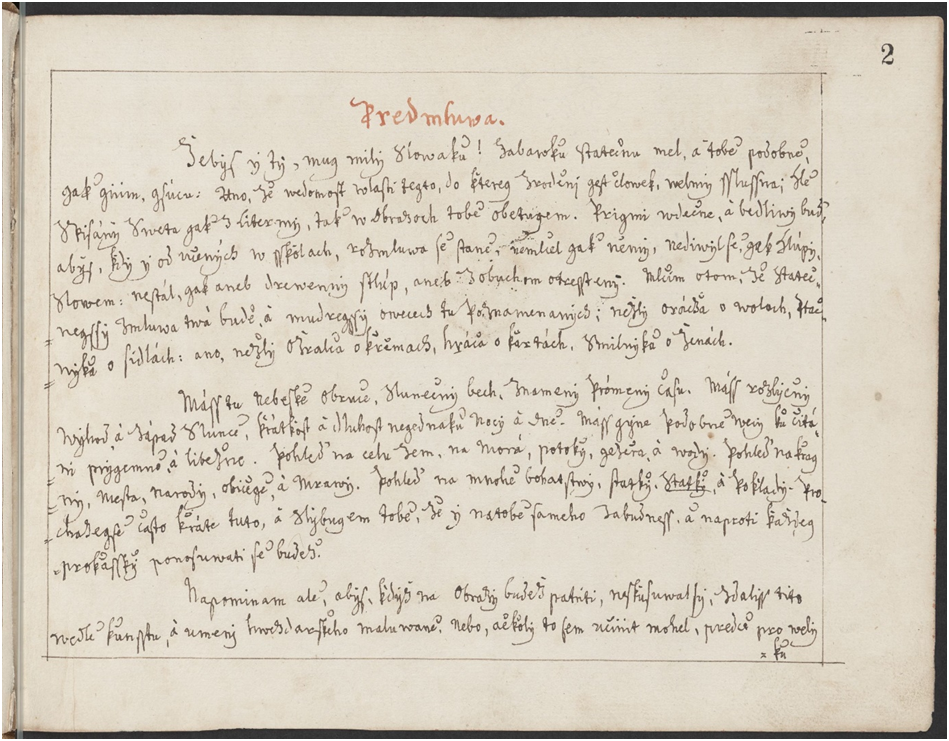 2
Predmluwa.
Žebys y ty, mug mily Slowaku! Zabawku statečnu mel, a tobe podobne,
gak giním, gsúcu: Ano, že wedomost wlasti tegto, do ktereg zrozeni gest člowek, welmi sslussna; Hle
Skisáni Sweta gak z litermi, tak w Obrazoch tobe obetugem. Prigmi wdečne, a bedliwi bud,
abys, kdy y od učených w sskolach, rozmluwa se stane, nemluel gak nemi, nediwyl se, gak hlúpi,
Slowem: nestál, gak aneb drewenni stlúp, aneb Zobuchom otressteny. Mluwim otom, že Stateč-
negssy zmluwa twá bude, á mudregssy owecech tu poznamenanich; nežly oráča o woloch, ptač-
nyka o sidlách: ano, nežly Ožralca o krčmach, hráča o kartách, Smilnyka o ženách.
Máss tu Nebeské Obruče, Slunečni bech, Znameni Prómeni času. Máss rozličzni
Wýhod á Západ Slunce, krátkost á dluhost negednaku Nocy á Dne. Máss gine podobne weci ku čitá-
ni prigemne, á libežne. Pohled na celu Zem, na Morá, potoky, gezera, á wody. Pohled na krag
ni, mesta, narody, običege, á Mrawy. Pohled na mnohe bohatstwy, statky, Statky, á Poklady. Pro-
chazegse často kráte tuto, á Slybugem tobe, že y natobe sameho Zabudness, a naproti každeg
prokassky ponosuwati se budeš.
Napominam ale, abys, kdyz na Obrazy budeš patriti, neskusuwal sy, zdaliss tito
wedle kunsstu, á umeni hwezdarskeho maluwane, nebo, ačkoly to sem učinit mohel, predce pro weli
= ku